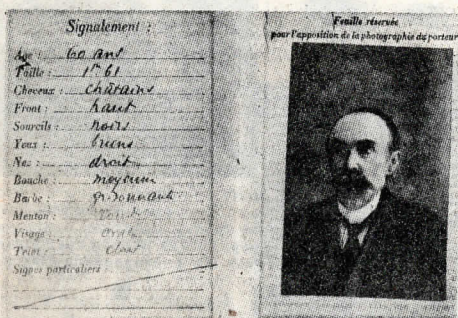 Signalement :
Age : 60 ans
Taille : 1m 61
Cheveux : châtains
Front : haut
Sourcils : noirs
Yeux : bruns
Nez : droit
Bouche : moyenne
Barbe : grisonnante
Menton : rond
Visage : ovale
Teint : clair
Signes particuliers
Feuille réservée
pour l'apposition de la photographie du porteur